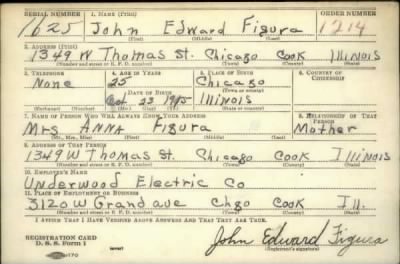 SERIAL NUMBER 1. NAME (Print) ORDER NUMBER
1625 John Edward Figura 1214
(First) (Middle) (Last)
2. ADDRESS (Print)
1349 W Thomas St. Chicago Cook Illinois
(Number and street or R. F. D. number) (Town) (County) (State)
3. TELEPHONE 4. AGE IN YEARS 5. PLACE OF BIRTH 6. COUNTRY OF CITIZENSHIP
None 25 Chicago
DATE OF BIRTH (Town or county)
Oct 23 1915 Illinois
(Exchange) (Number) (Mo.) (Day) (Yr.) (State or country)
7. NAME OF PERSON WHO WILL ALWAYS KNOW YOUR ADDRESS 8. RELATIONSHIP OF THAT PERSON
Mrs ANNA Figura Mother
(Mr., Mrs., Miss) (First) (Middle) (Last)
9. ADDRESS OF THAT PERSON
1349 W Thomas St. Chicago Cook Illinois
(Number and street or R. F. D. number) (Town) (County) (State)
10. EMPLOYER'S NAME
Underwood Electric Co
11. PLACE OF EMPLOYMENT OR BUSINESS
3120 W Grand ave Chgo Cook Ill.
(Number and street or R. F. D. number) (Town) (County) (State)
I AFFIRM THAT I HAVE VERIFIED ABOVE ANSWERS AND THAT THEY ARE TRUE.
REGISTRATION CARD
D. S. S. Form 1 (over) John Edward Figura
(Registrant's signature)